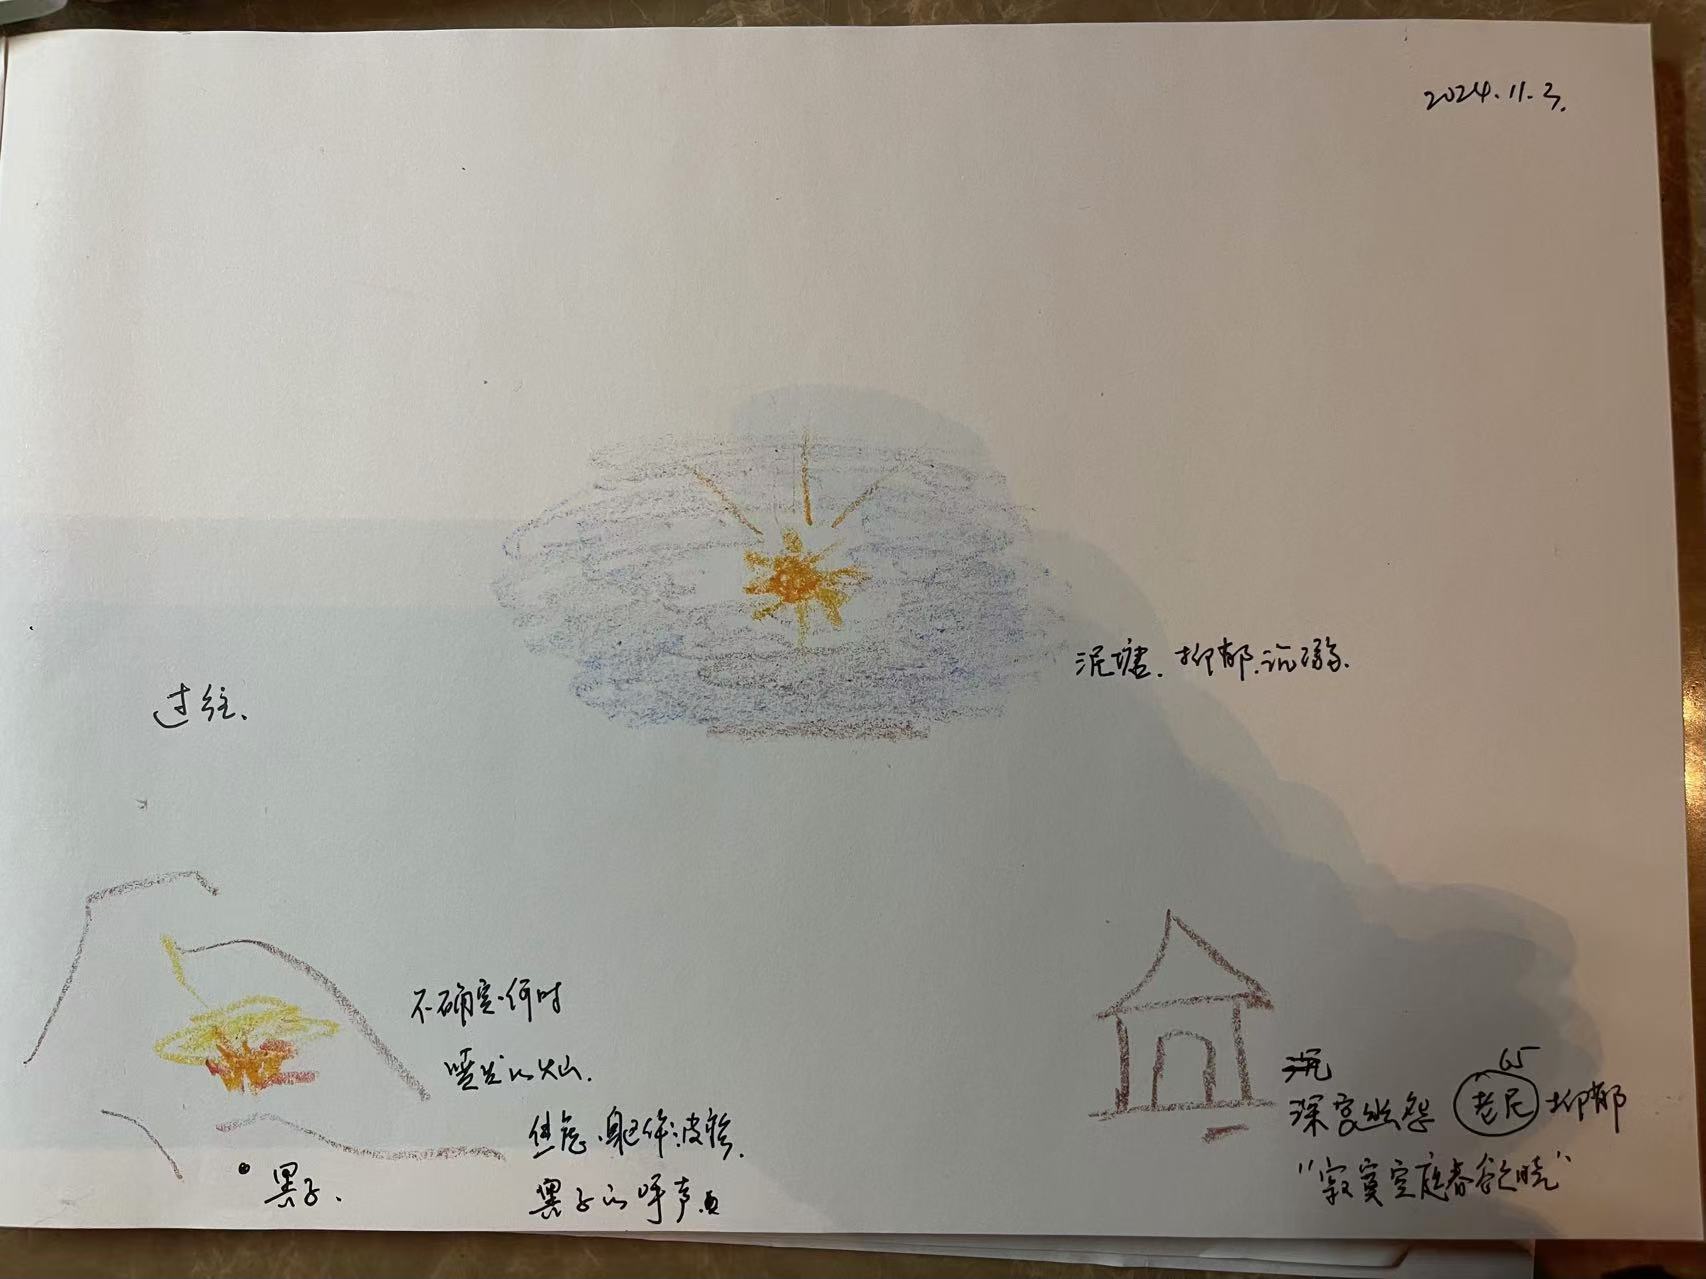 2024.11.3.
泥塘.抑郁.沉溺.
过往.
不确定.何时
喷发的火山.
焦虑.身体:波轮.
黑子的呼声.
黑子.
沉
深宫幽怨 老尼 抑郁
65
"寂寞空庭春欲晚"